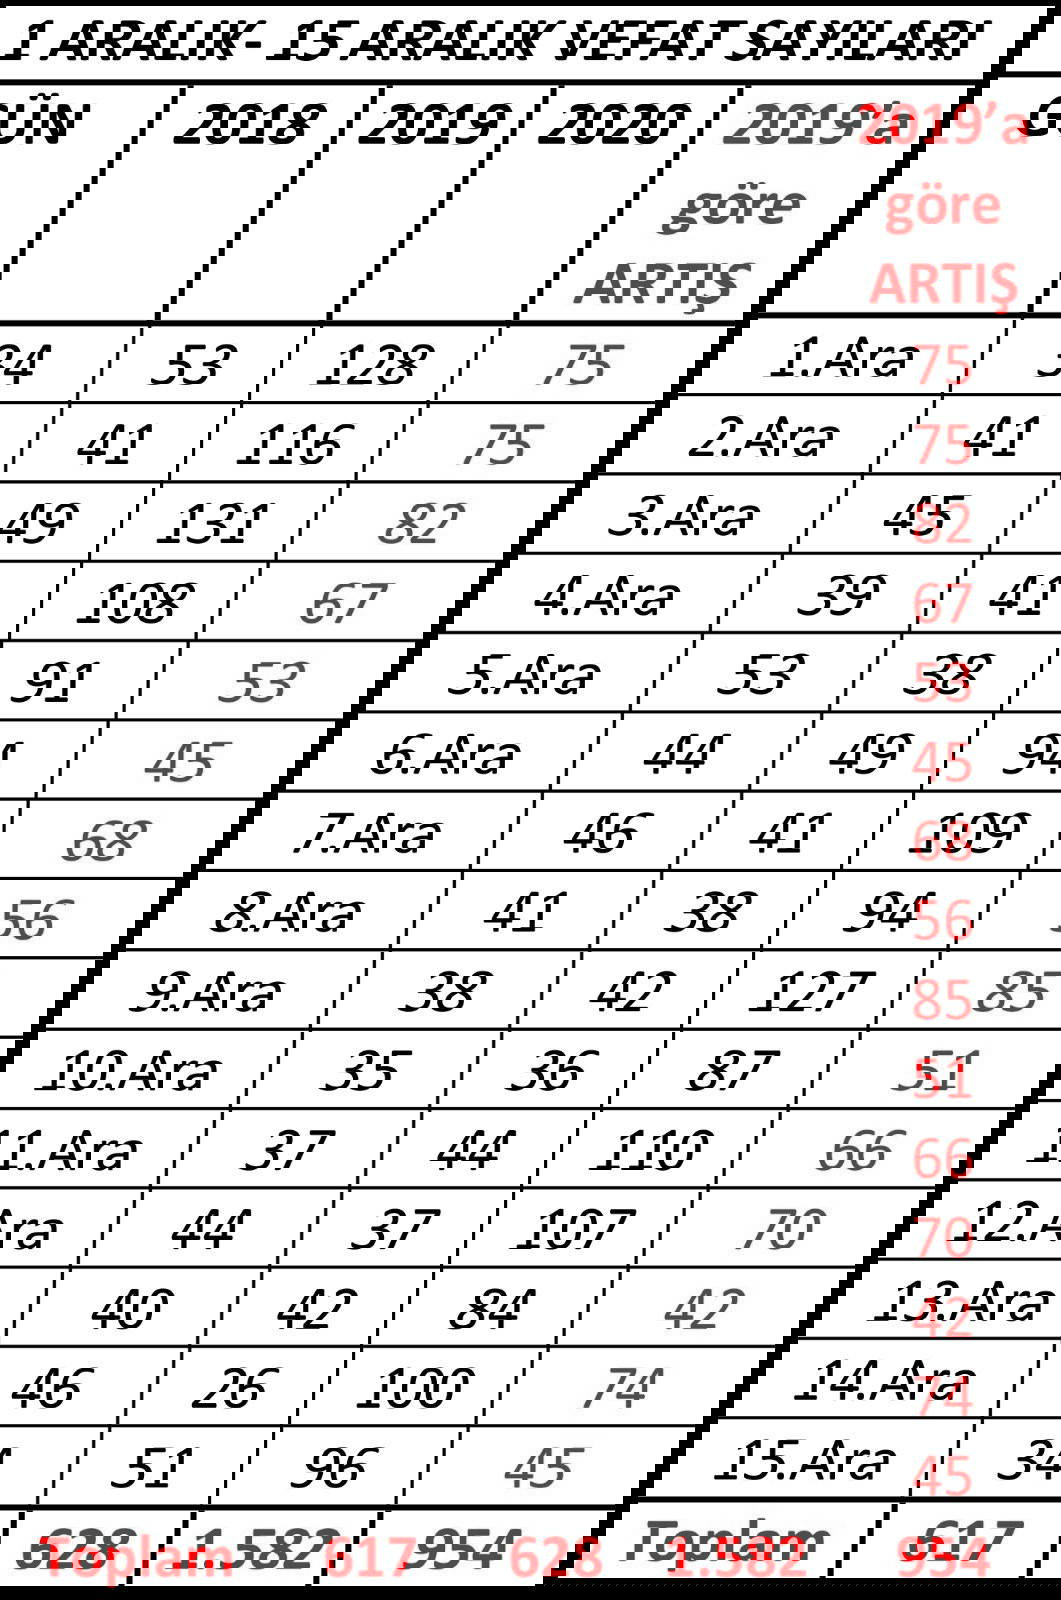 1 ARALIK- 15 ARALIK VEFAT SAYILARI
GÜN 2018 2019 2020 2019'a 2019'a
göre göre
ARTIŞ ARTIŞ
34 53 128 75 1.Ara 75
41 116 75 2.Ara 75 41
49 131 82 3.Ara 45 82
108 67 4.Ara 39 67 41
91 53 5.Ara 53 38 53
45 6.Ara 44 49 45 94
68 7.Ara 46 41 109 68
56 8.Ara 41 38 94 56
9.Ara 38 42 127 85 85
10.Ara 35 36 87 51 51
11.Ara 37 44 110 66 66
44 37 107 70 70 12.Ara
40 42 84 42 13.Ara 42
46 26 100 74 14.Ara 74
51 96 45 15.Ara 45 34
628 Toplam 1.582 617 954 628 Toplam 1.582 617 954